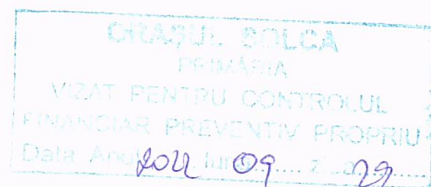 ORAȘUL SOLCA
PRIMĂRIA
VIZAT PENTRU CONTROLUL
FINANCIAR PREVENTIV PROPRIU
Data Anul 2022 luna 09 ziua 29